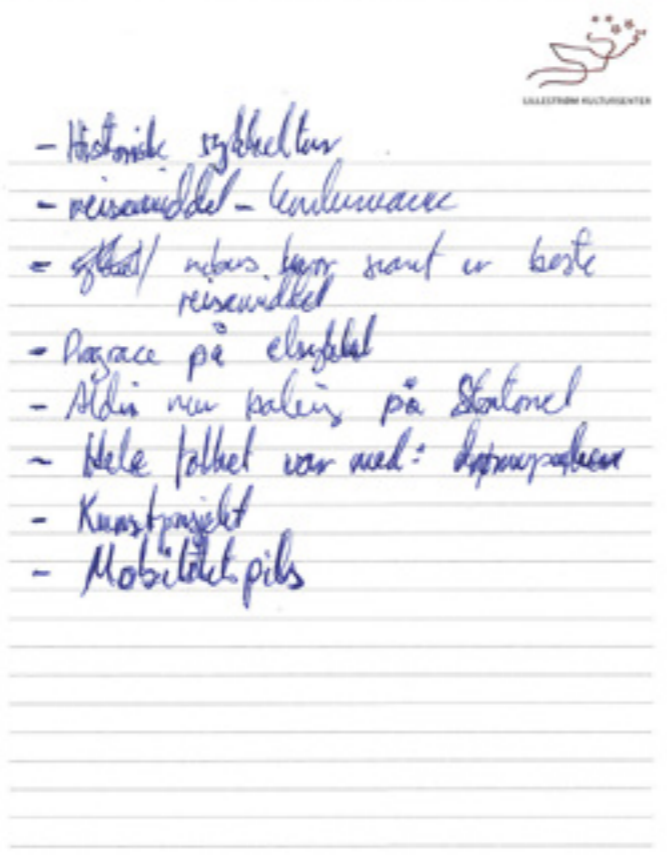 LILLESTRØM KULTURSENTER
- Historisk sykkeltur
- reisemiddel - konkurranse
- hvor snart er beste
reisemiddel
- Dragrace på elsykkel
- Aldri mer på
- Hele folket var med:
- Kunstprosjekt
- Mobilitetspils